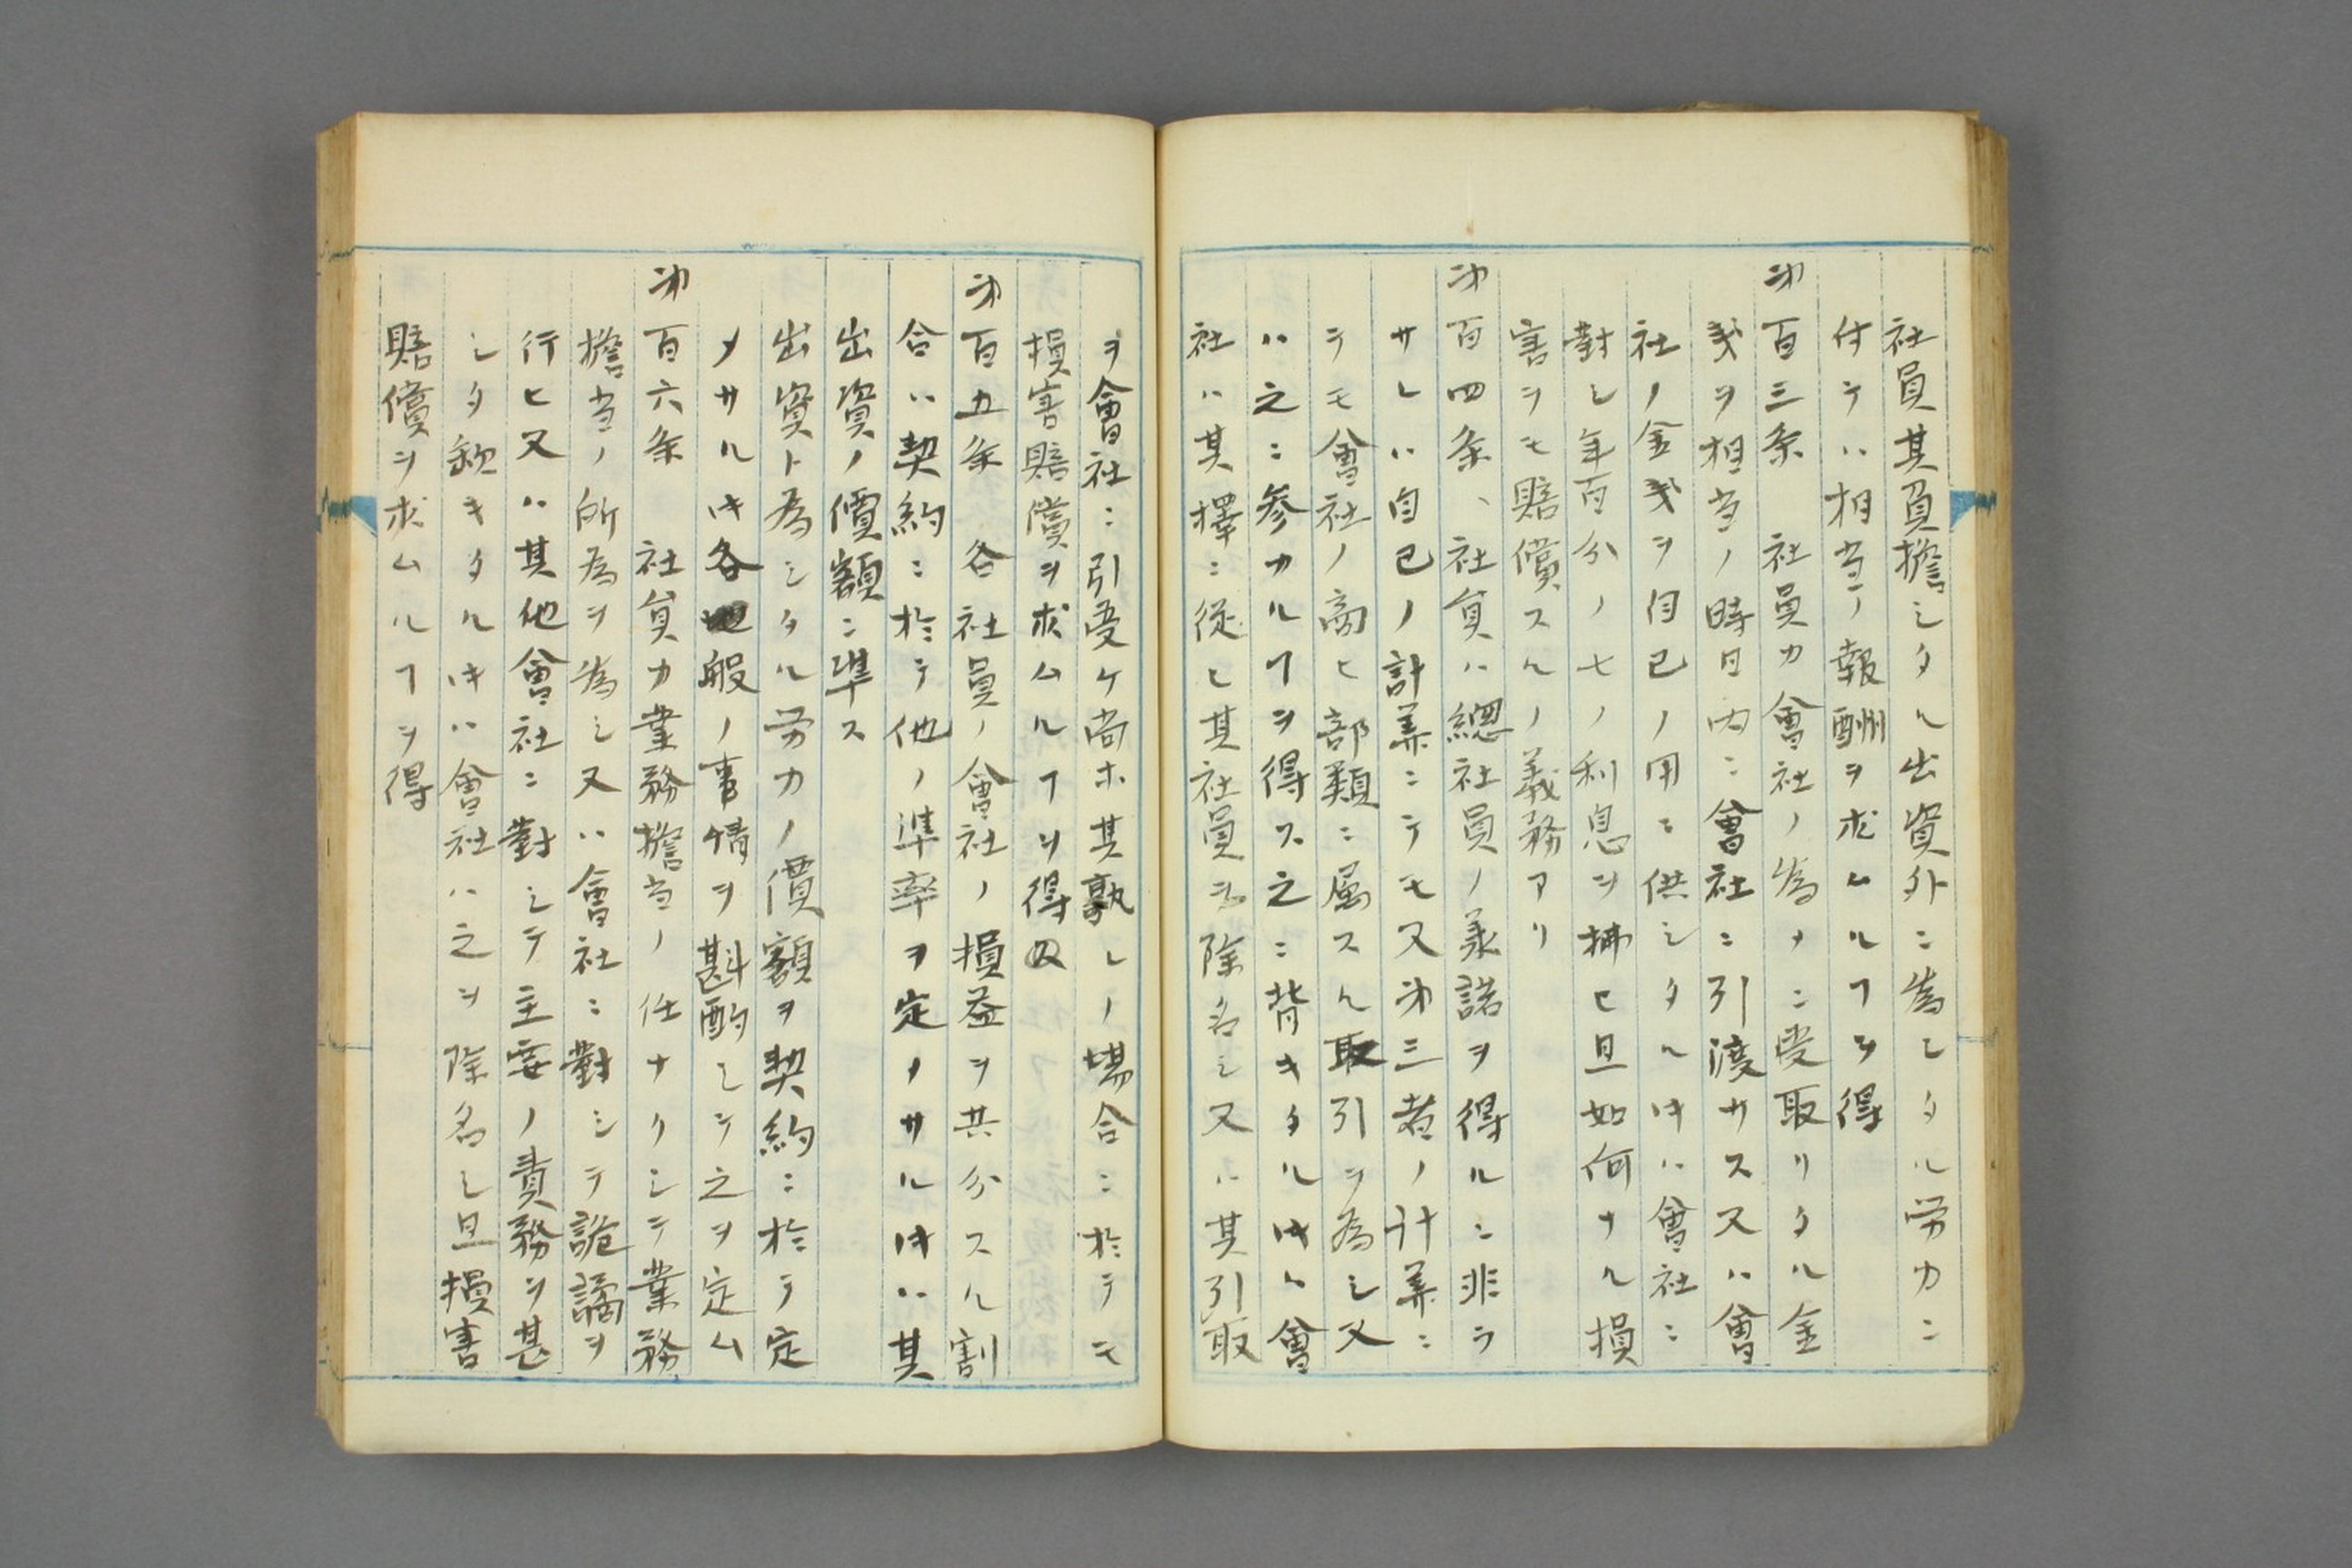 社員其負擔シタル出資外ニ為シタル労力ニ
付テハ相当ノ報酬ヲ求ムルヿヲ得
㐧百三条　社員カ會社ノ為メニ受取リタル金
戔ヲ相当ノ時日内ニ會社ニ引渡サス又ハ會
社ノ金戔ヲ自己ノ用ニ供シタル𪜈ハ會社ニ
對シ年百分ノ七ノ利息ヲ拂ヒ且如何ナル損
害ヲモ賠償スルノ義務アリ
㐧百四条、社員ハ總社員ノ承諾ヲ得ルニ非ラ
サレハ自己ノ計算ニテモ又㐧三者ノ計算ニ
テモ會社ノ商ヒ部類ニ属スル取引ヲ為シ又
ハ之ニ参カルヿヲ得ス之ニ背キタル𪜈ハ會
社ハ其擇ニ従ヒ其社員ヲ除名シ又ハ其引取
ヲ會社ニ引受ケ尚ホ其孰レノ場合ニ於テモ
損害賠償ヲ求ムルヿヲ得
㐧百五条　各社員ノ會社ノ損益ヲ共分スル割
合ハ契約ニ於テ他ノ準率ヲ定メサル𪜈ハ其
出資ノ價額ニ準ス
出資ト為シタル労力ノ價額ヲ契約ニ於テ定
メサル𪜈各般ノ事情ヲ斟酌シテ之ヲ定ム
㐧百六条　社員カ業務擔当ノ任ナクシテ業務
擔当ノ所為ヲ為シ又ハ會社ニ對シテ詭譎ヲ
行ヒ又ハ其他會社ニ對シテ主要ノ責務ヲ甚
シク欠キタル𪜈ハ會社ハ之ヲ除名シ且損害
賠償ヲ求ムルヿヲ得